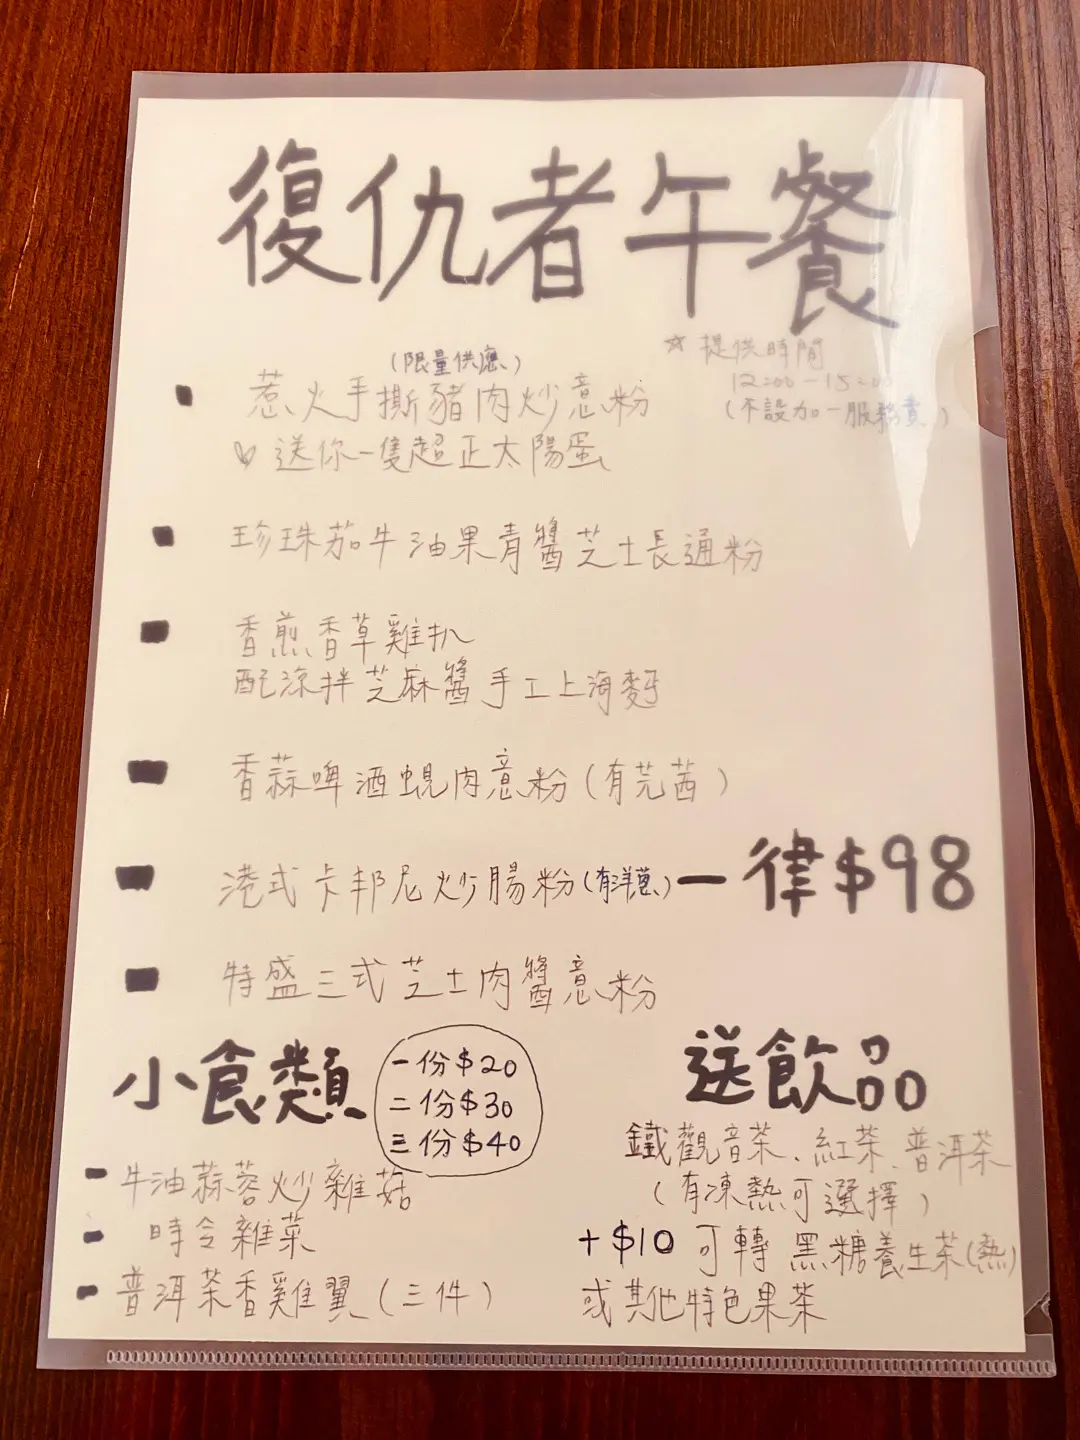 復仇者午餐
☆提供時間
12:00-15:00
(不設加一服務費)
(限量供應)
惹火手撕豬肉炒意粉
♡ 送你一隻超正太陽蛋
珍珠茄牛油果青醬芝士長通粉
香煎香草雞扒
配涼拌芝麻醬手工上海麵
香蒜啤酒蜆肉意粉(有芫茜)
港式卡邦尼炒腸粉(有洋蔥)
一律$98
特盛三式芝士肉醬意粉
小食類
一份$20
二份$30
三份$40
牛油蒜蓉炒雜菇
時令雜菜
普洱茶香雞翼(三件)
送飲品
鐵觀音茶、紅茶、普洱茶
(有凍熱可選擇)
+$10可轉黑糖養生茶(熱)
或其他特色果茶